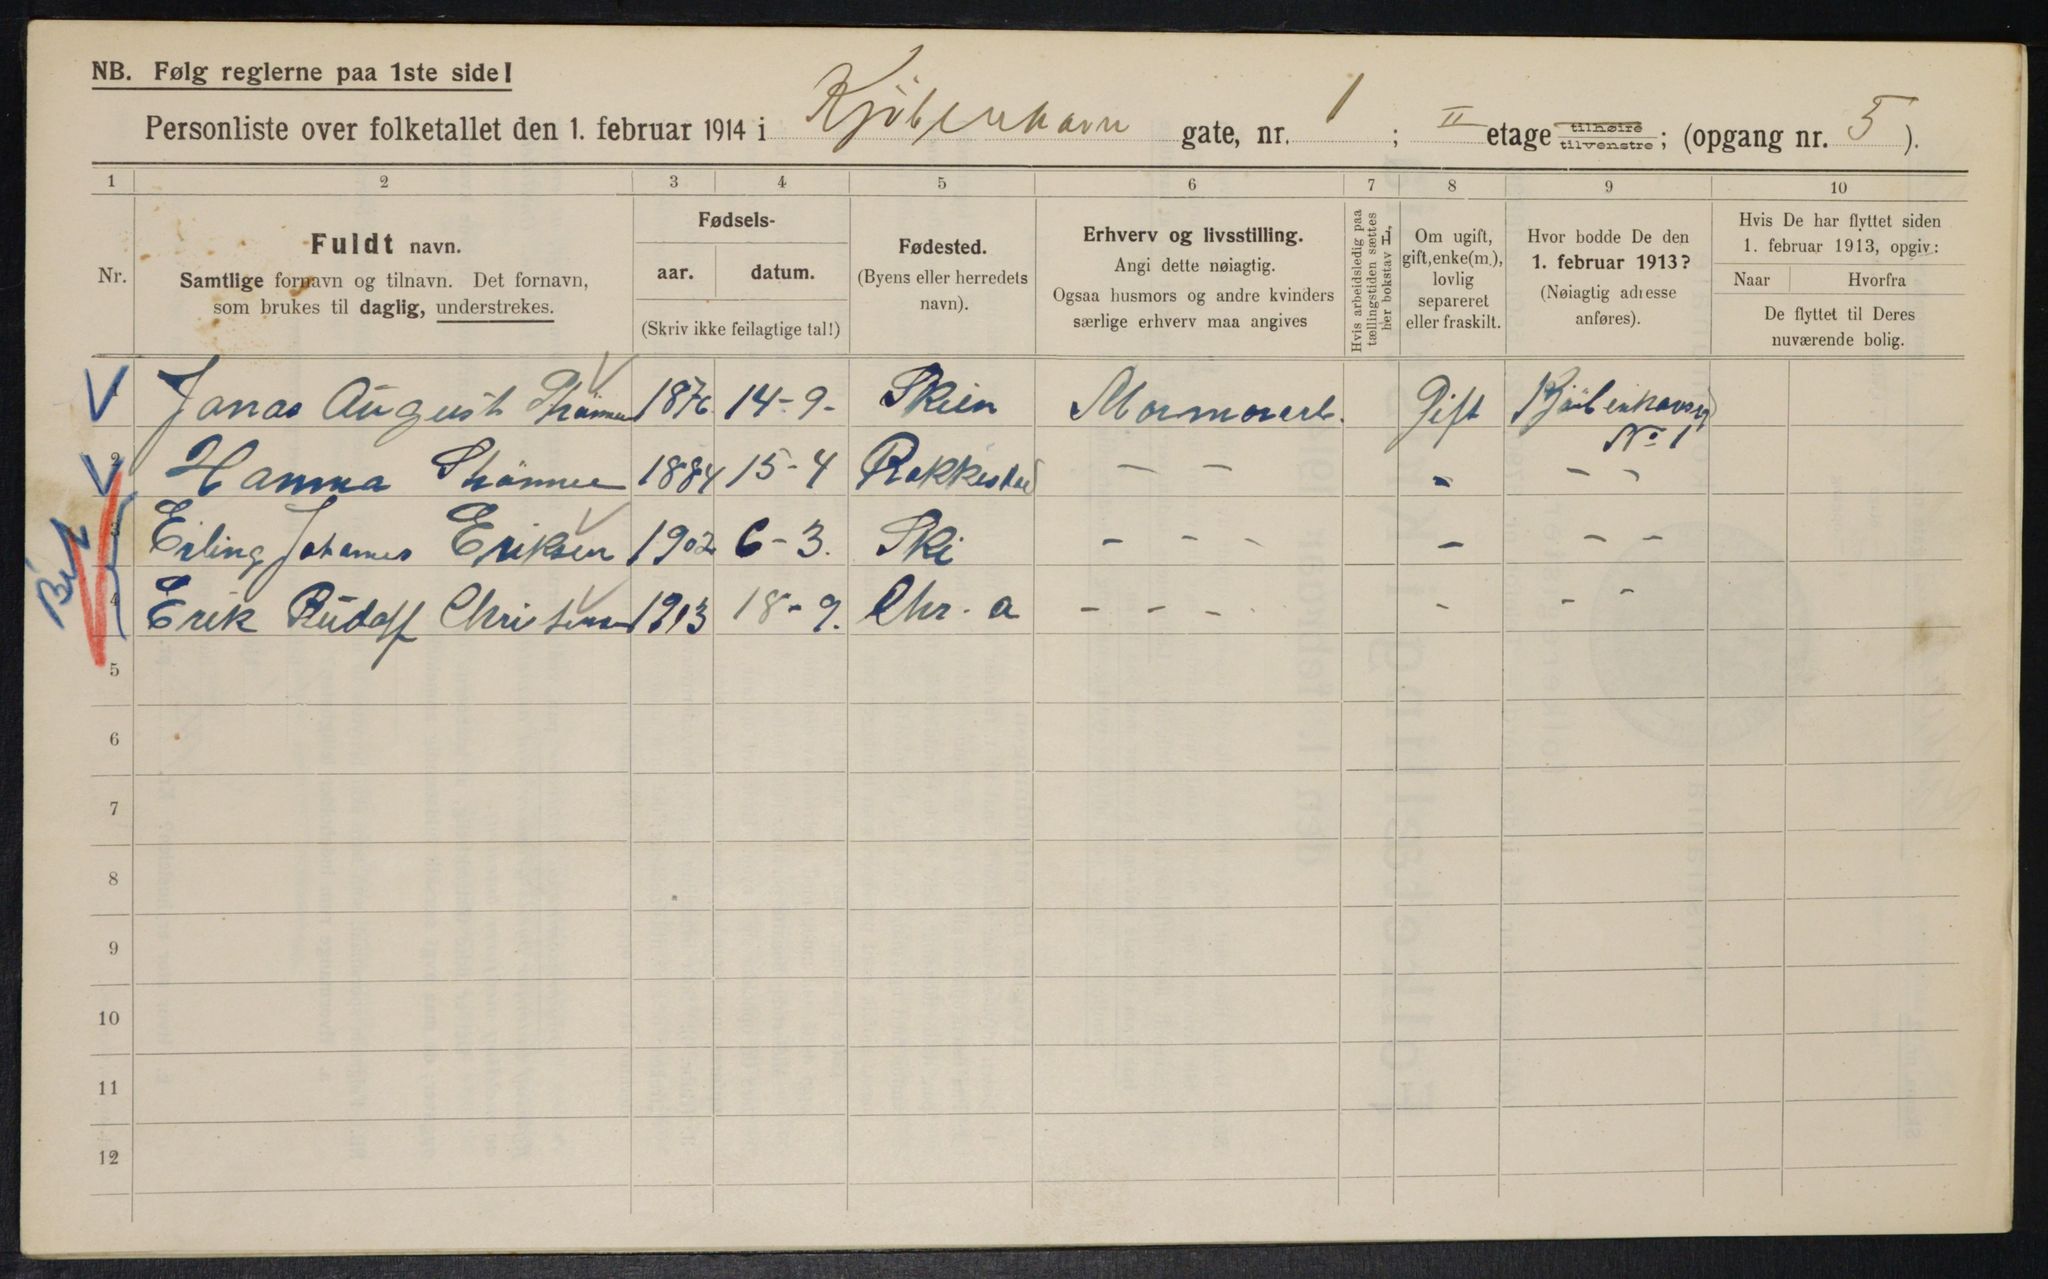 NB. Følg reglerne paa 1ste side!
Personliste over folketallet den 1. februar 1914 i Kjøbenhavn gate, nr. 1; II etage tilhøire tilvenstre; (opgang nr. 5).
1 2 3 4 5 6 7 8 9 10
Nr.
Fuldt navn.
Samtlige fornavn og tilnavn. Det fornavn,
som brukes til daglig, understrekes.
Fødsels-
aar. datum.
(Skriv ikke feilagtige tal!)
Fødested.
(Byens eller herredets
navn).
Erhverv og livsstilling.
Angi dette nøiagtig.
Ogsaa husmors og andre kvinders
særlige erhverv maa angives
Hvis arbeidsledig paa
tællingstiden sættes
her bokstav L,
Om ugift,
gift, enke(m.),
lovlig
separeret
eller fraskilt.
Hvor bodde De den
1. februar 1913?
(Nøiagtig adresse
anføres).
Hvis De har flyttet siden
1. februar 1913, opgiv:
Naar Hvorfra
De flyttet til Deres
nuværende bolig.
1 Jonas August 1876 14-9- Skien Marmorarb. Gift Kjøbenhavnsg No 1
2 Hanna 1884 15-4 Rakkestad - - - - -
3 Erling Johannes Eriksen 1902 6-3. Ski - - - - - -
4 Erik Rudolf Christensen 1913 18-9. Chr. a - - - - - -
5
6
7
8
9
10
11
12